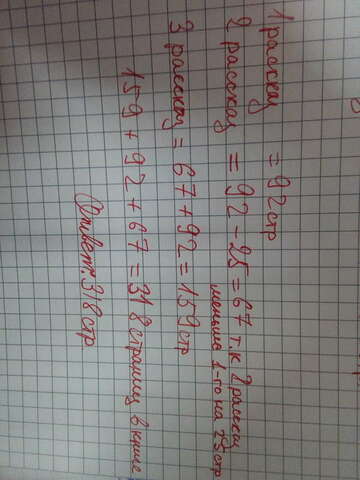 1 рассказ = 92 стр
2 рассказ = 92 - 25 = 67 т.к 2 рассказ
меньше 1-го на 25 стр
3 рассказ = 67 + 92 = 159 стр
159 + 92 + 67 = 318 страниц в книге
Ответ: 318 стр